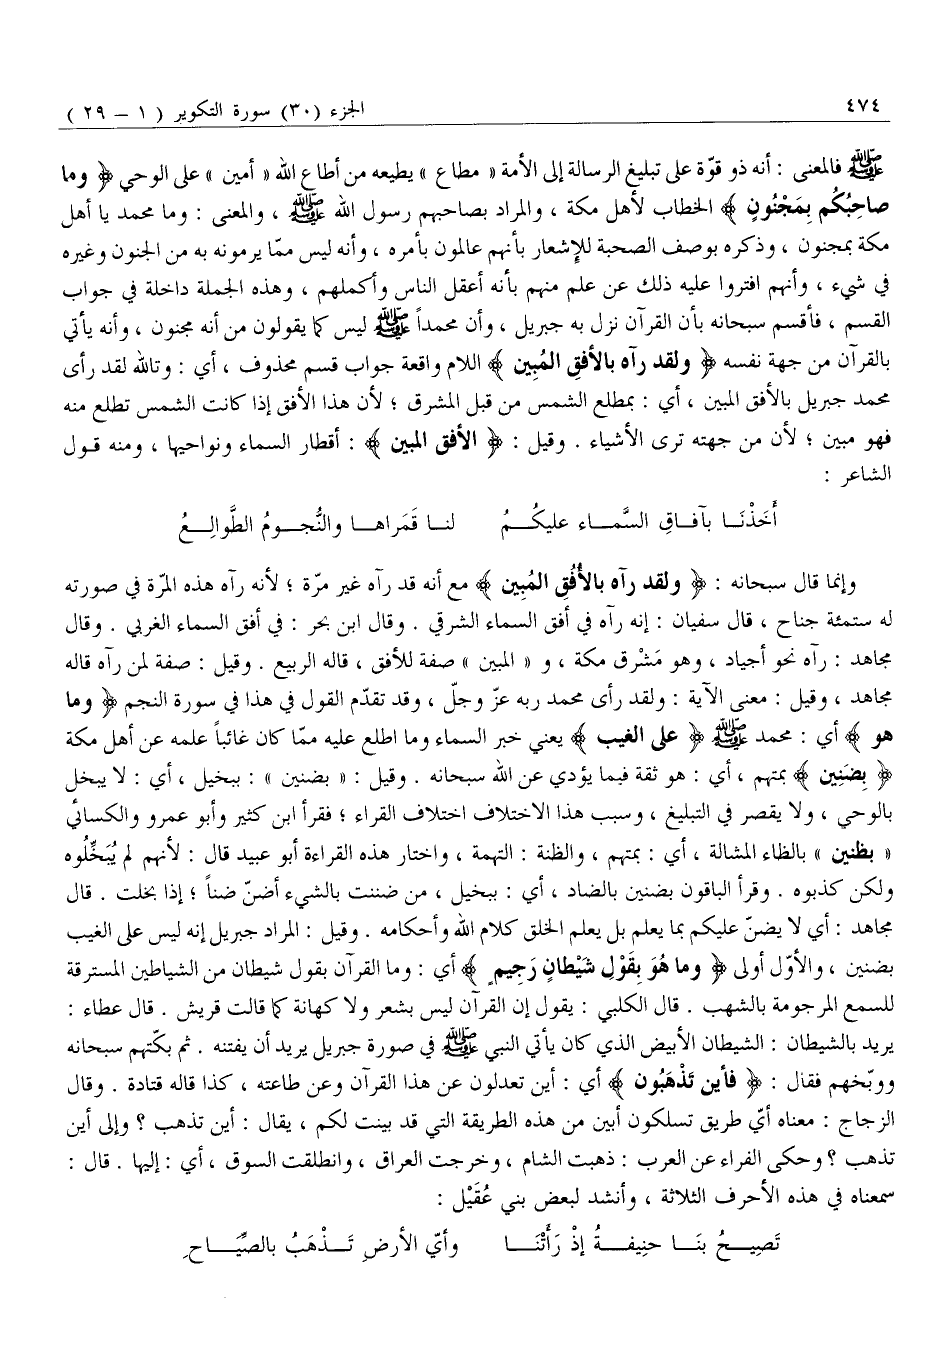 ٤٧٤
الجزء (٣٠) سورة التكوير ( ١ ــ ٢٩ )
ﷺ فالمعنى : أنه ذو قوّة على تبليغ الرسالة إلى الأمة « مطاع » يطيعه من أطاع الله « أمين » على الوحي ﴿ وما
صاحِبُكُم بِمَجْنُونٍ ﴾ الخطاب لأهل مكة ، والمراد بصاحبهم رسول الله ﷺ ، والمعنى : وما محمد يا أهل
مكة بمجنون ، وذكره بوصف الصحبة للإشعار بأنهم عالمون بأمره ، وأنه ليس ممّا يرمونه به من الجنون وغيره
في شيء ، وأنهم افتروا عليه ذلك عن علم منهم بأنه أعقل الناس وأكملهم ، وهذه الجملة داخلة في جواب
القسم ، فأقسم سبحانه بأن القرآن نزل به جبريل ، وأن محمداً ﷺ ليس كما يقولون من أنه مجنون ، وأنه يأتي
بالقرآن من جهة نفسه ﴿ ولقد رآه بالأفقِ المُبِين ﴾ اللام واقعة جواب قسم محذوف ، أي : وتالله لقد رأى
محمد جبريل بالأفق المبين ، أي : بمطلع الشمس من قبل المشرق ؛ لأن هذا الأفق إذا كانت الشمس تطلع منه
فهو مبين ؛ لأن من جهته ترى الأشياء . وقيل : ﴿ الأفق المبين ﴾ : أقطار السماء ونواحيها ، ومنه قـول
الشاعر :
أَخَذْنَـا بآفـاقِ السَّمـاء عليكُـمُ لنـا قَمَراهـا والنُّجـومُ الطَّوالِـعُ
وإنما قال سبحانه : ﴿ ولقد رآه بالأُفُقِ المُبِين ﴾ مع أنه قد رآه غير مرّة ؛ لأنه رآه هذه المرّة في صورته
له ستمئة جناح ، قال سفيان : إنه رآه في أفق السماء الشرقي . وقال ابن بحر : في أفق السماء الغربي . وقال
مجاهد : رآه نحو أجياد ، وهو مَشْرق مكة ، و « المبين » صفة للأفق ، قاله الربيع . وقيل : صفة لمن رآه قاله
مجاهد ، وقيل : معنى الآية : ولقد رأى محمد ربه عزّ وجلّ ، وقد تقدّم القول في هذا في سورة النجم ﴿ وما
هو ﴾ أي : محمد ﷺ ﴿ على الغيب ﴾ يعني خبر السماء وما اطلع عليه ممّا كان غائباً علمه عن أهل مكة
﴿ بِضَنِين ﴾ بمتهم ، أي : هو ثقة فيما يؤدي عن الله سبحانه . وقيل : « بضنين » : ببخيل ، أي : لا يبخل
بالوحي ، ولا يقصر في التبليغ ، وسبب هذا الاختلاف اختلاف القراء ؛ فقرأ ابن كثير وأبو عمرو والكسائي
« بظنين » بالظاء المشالة ، أي : بمتهم ، والظنة : التهمة ، واختار هذه القراءة أبو عبيد قال : لأنهم لم يُبَخِّلُوه
ولكن كذبوه . وقرأ الباقون بضنين بالضاد ، أي : ببخيل ، من ضننت بالشيء أضنّ ضناً ؛ إذا بخلت . قال
مجاهد : أي لا يضنّ عليكم بما يعلم بل يعلم الخلق كلام الله وأحكامه . وقيل : المراد جبريل إنه ليس على الغيب
بضنين ، والأوّل أولى ﴿ وما هُوَ بِقَوْلِ شَيْطانٍ رَجِيمٍ ﴾ أي : وما القرآن بقول شيطان من الشياطين المسترقة
للسمع المرجومة بالشهب . قال الكلبي : يقول إن القرآن ليس بشعر ولا كهانة كما قالت قريش . قال عطاء :
يريد بالشيطان : الشيطان الأبيض الذي كان يأتي النبي ﷺ في صورة جبريل يريد أن يفتنه . ثم بكّتهم سبحانه
ووبّخهم فقال : ﴿ فأين تَذْهَبُون ﴾ أي : أين تعدلون عن هذا القرآن وعن طاعته ، كذا قاله قتادة . وقال
الزجاج : معناه أيّ طريق تسلكون أبين من هذه الطريقة التي قد بينت لكم ، يقال : أين تذهب ؟ وإلى أين
تذهب ؟ وحكى الفراء عن العرب : ذهبت الشام ، وخرجت العراق ، وانطلقت السوق ، أي : إليها . قال :
سمعناه في هذه الأحرف الثلاثة ، وأنشد لبعض بني عُقَيْل :
تَصِيـحُ بنَـا حنِيفـةُ إذْ رَأَتْنَـا وأيّ الأرضِ تَـذْهَبُ بالصِّيَـاحِ